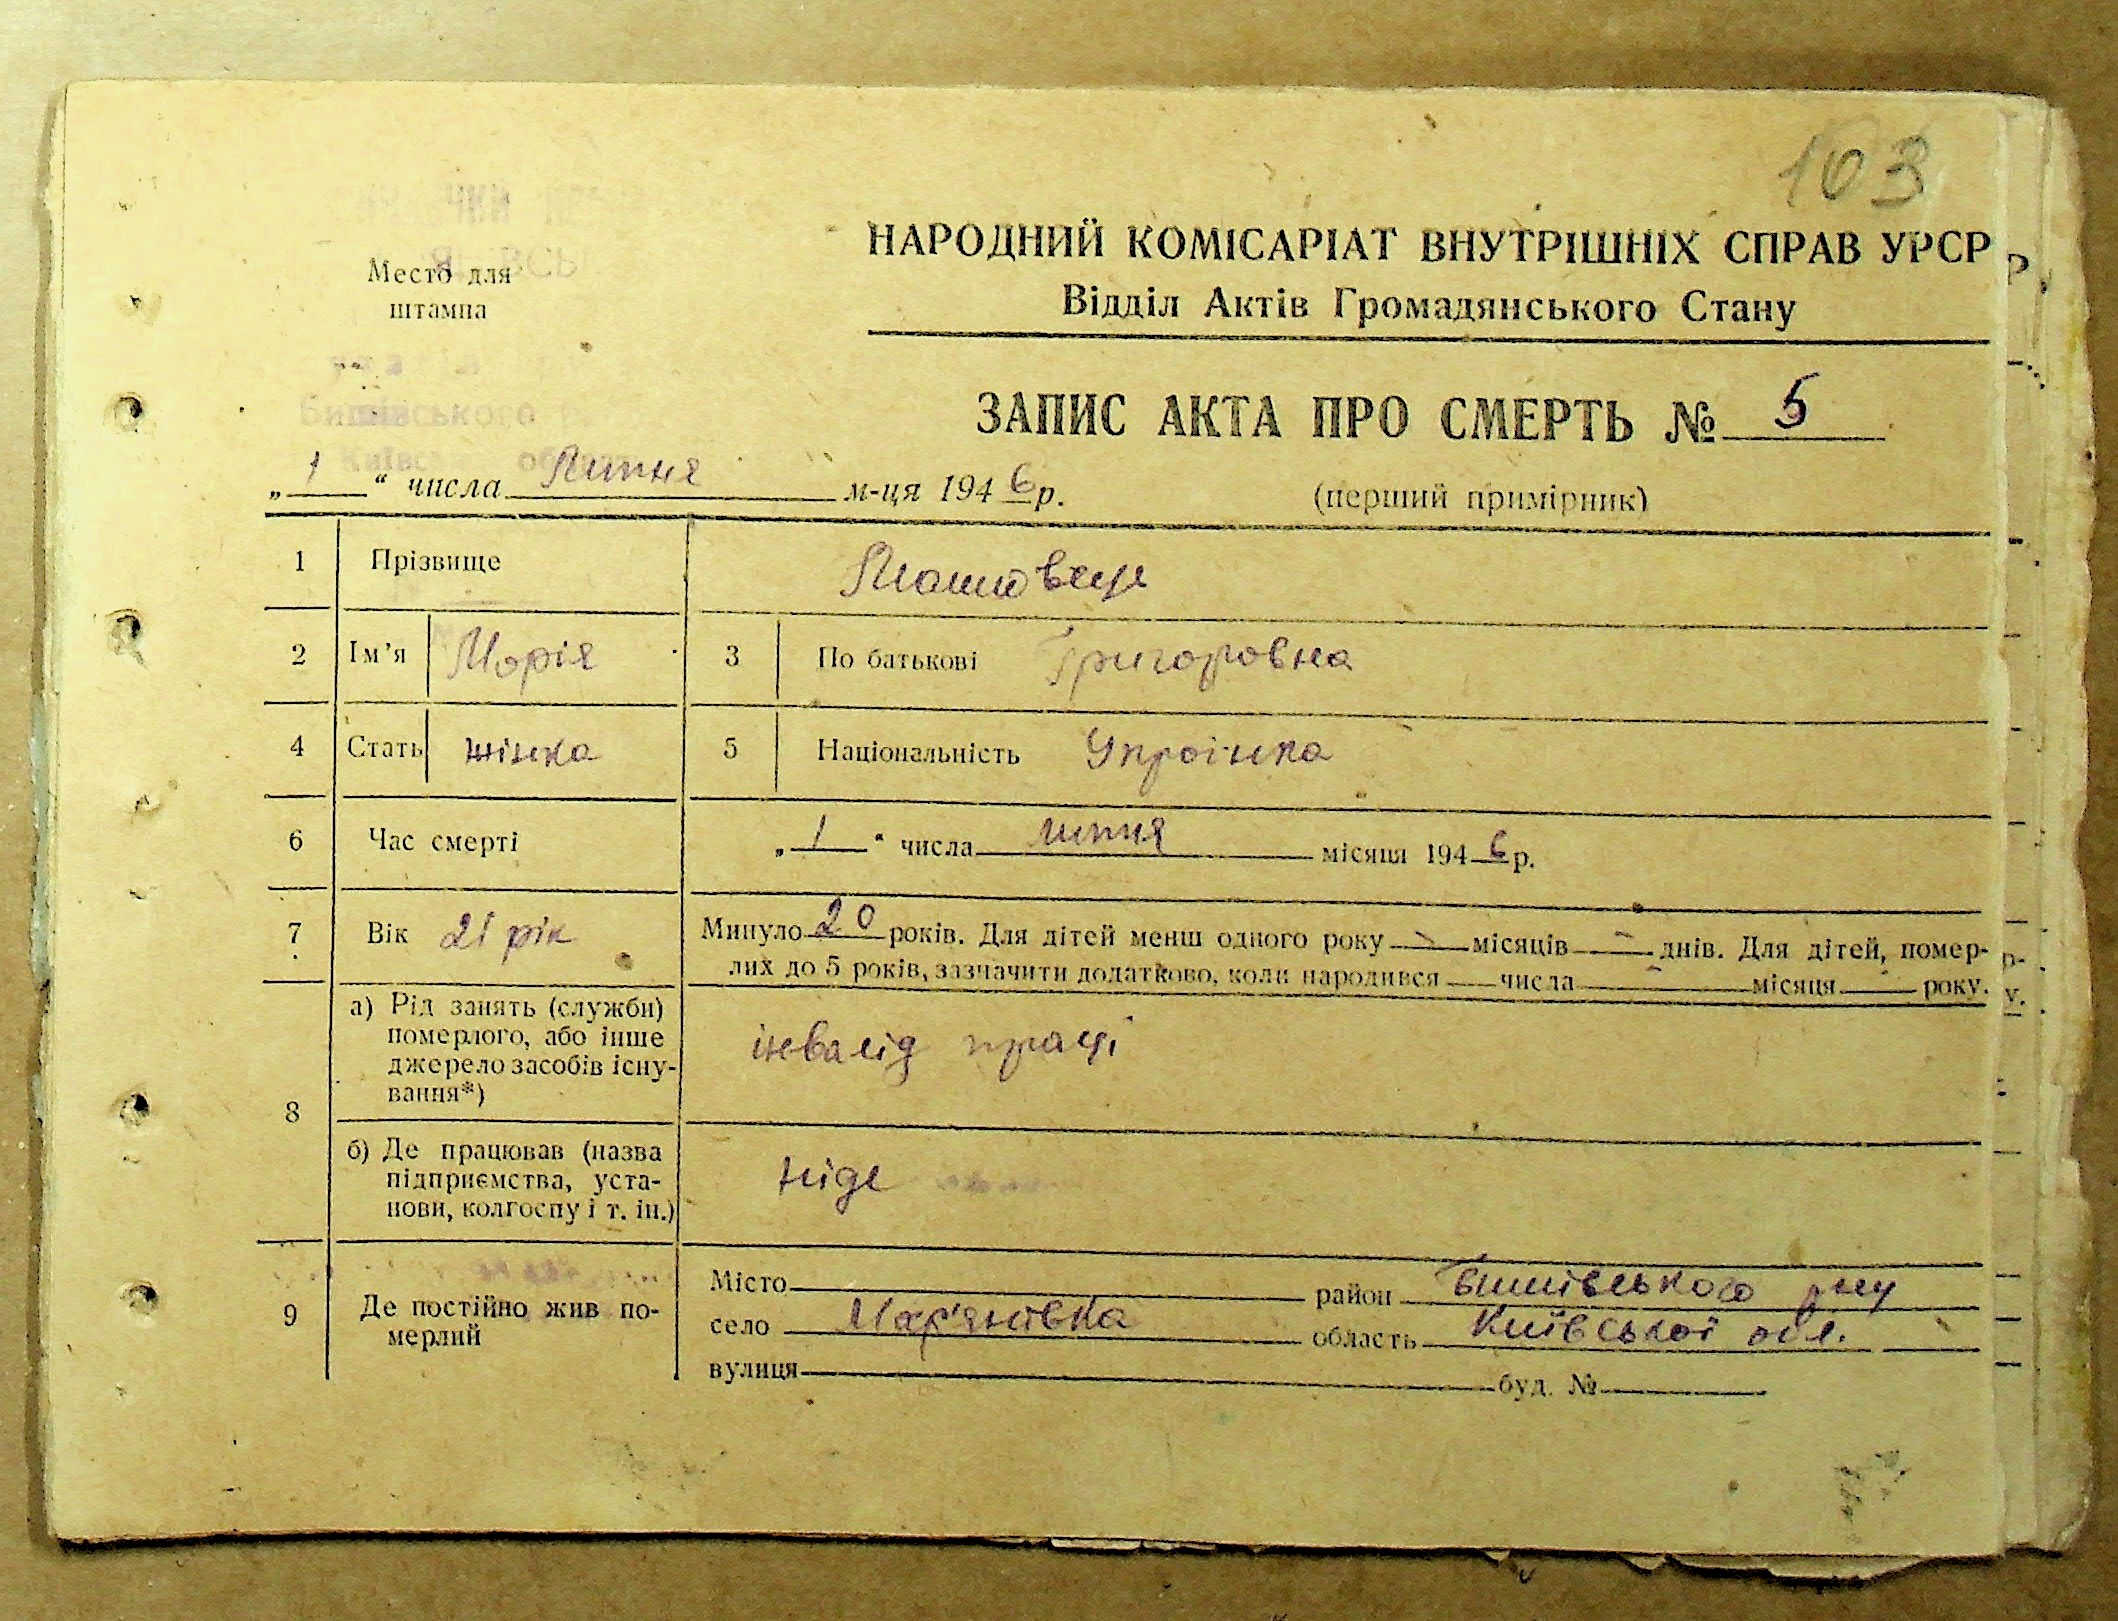 103
НАРОДНИЙ КОМІСАРІАТ ВНУТРІШНІХ СПРАВ УРСР
Відділ Актів Громадянського Стану
Место для
штампа
Бишівського
ЗАПИС АКТА ПРО СМЕРТЬ № 5
„ 1 “ числа Липня м-ця 1946 р. (перший примірник)
1 Прізвище
2 Ім’я Марія 3 По батькові Григоровна
4 Стать жінка 5 Національність Українка
6 Час смерті „ 1 “ числа липня місяця 1946 р.
7 Вік 21 рік Минуло 20 років. Для дітей менш одного року - місяців - днів. Для дітей, помер-
лих до 5 років, зазначити додатково, коли народився числа - місяця - року.
8 а) Рід занять (служби)
померлого, або інше
джерело засобів існу-
вання*) інвалід праці
б) Де працював (назва
підприємства, уста-
нови, колгоспу і т. ін.) ніде
9 Де постійно жив по-
мерлий
Місто район Бишівського р-ну
село Мар'янівка область Київської обл.
вулиця буд. №